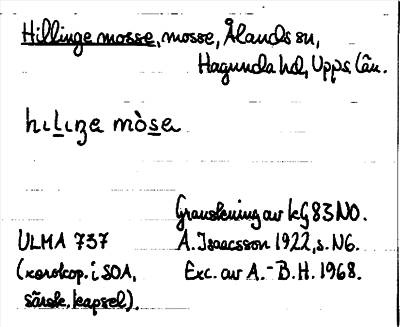 Hillinge mosse, mosse, Ålands sn,
Hagunda hd, Upps. län.
hɩlɩŋe mòse
Granskning av kG 83 NO.
ULMA 737 A. Isaacsson 1922, s. N6.
(xerokop. i SOA, Exc. av A.-B.H. 1968.
särsk. kapsel).